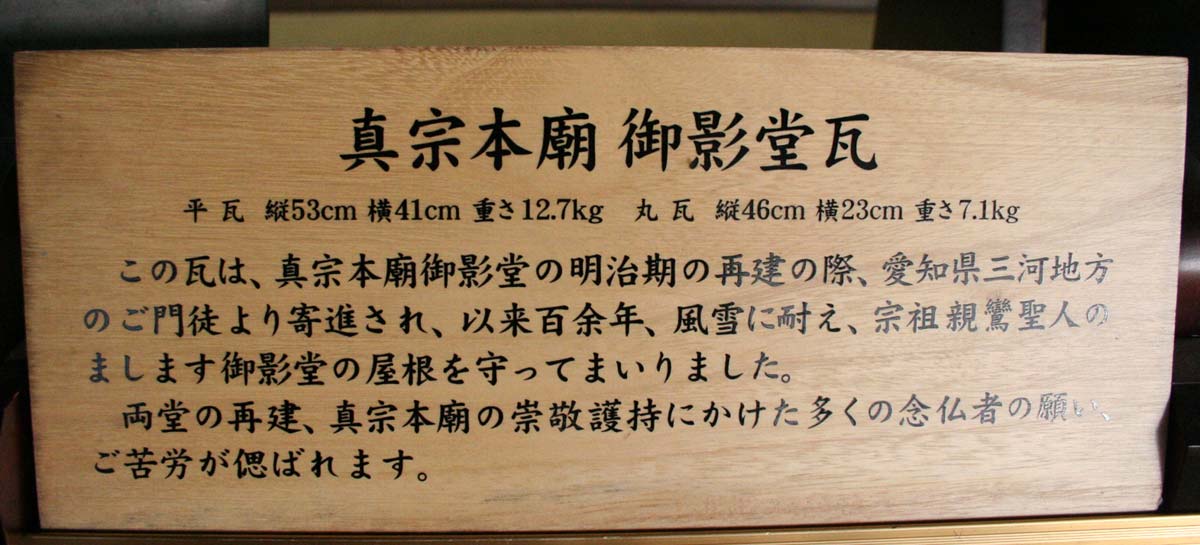 真宗本廟 御影堂瓦
平瓦 縦53cm 横41cm 重さ12.7kg 丸瓦 縦46cm 横23cm 重さ7.1kg
この瓦は、真宗本廟御影堂の明治期の再建の際、愛知県三河地方
のご門徒より寄進され、以来百余年、風雪に耐え、宗祖親鸞聖人の
まします御影堂の屋根を守ってまいりました。
両堂の再建、真宗本廟の崇敬護持にかけた多くの念仏者の願い、
ご苦労が偲ばれます。